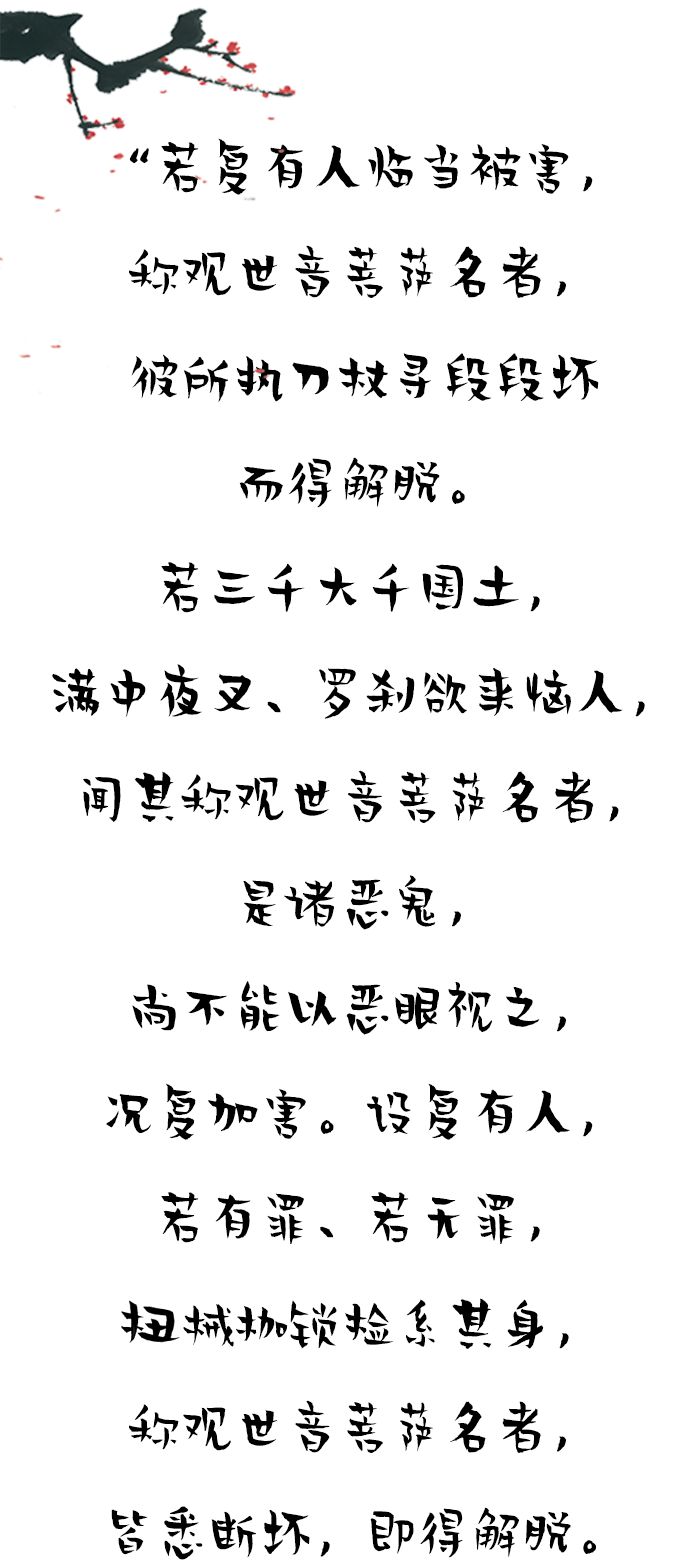 “若复有人临当被害，
称观世音菩萨名者，
彼所执刀杖寻段段坏
而得解脱。
若三千大千国土，
满中夜叉、罗刹欲来恼人，
闻其称观世音菩萨名者，
是诸恶鬼，
尚不能以恶眼视之，
况复加害。设复有人，
若有罪、若无罪，
扭械枷锁检系其身，
称观世音菩萨名者，
皆悉断坏，即得解脱。